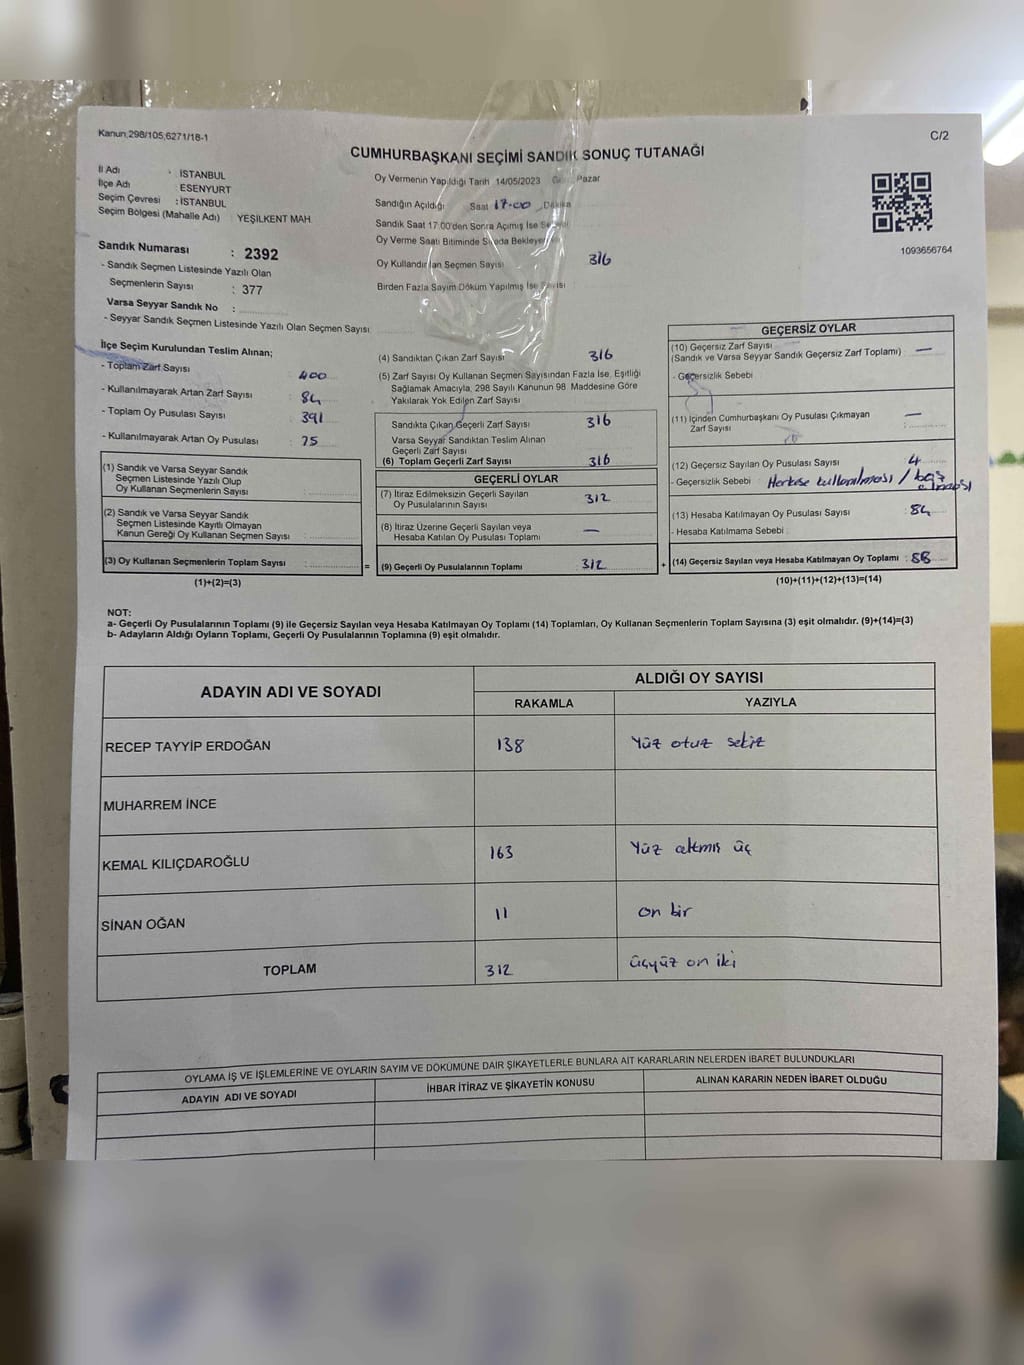 Kanun;298/105;6271/18-1
C/2
CUMHURBAŞKANI SEÇİMİ SANDIK SONUÇ TUTANAĞI
İl Adı : İSTANBUL
İlçe Adı : ESENYURT
Seçim Çevresi : İSTANBUL
Seçim Bölgesi (Mahalle Adı) : YEŞİLKENT MAH
Sandık Numarası : 2392
- Sandık Seçmen Listesinde Yazılı Olan
Seçmenlerin Sayısı : 377
Varsa Seyyar Sandık No :
- Seyyar Sandık Seçmen Listesinde Yazılı Olan Seçmen Sayısı:
Oy Vermenin Yapıldığı Tarih 14/05/2023 Pazar
Sandığın Açıldığı Saat 17.00 Dakika
Sandık Saat 17.00'den Sonra Açmış İse
Oy Verme Saati Bitiminde Sırada Bekleyen
Oy Kullandırılan Seçmen Sayısı 316
Birden Fazla Sayım Döküm Yapılmış İse Sayısı
1093656764
İlçe Seçim Kurulundan Teslim Alınan;
- Toplam Zarf Sayısı : 400
- Kullanılmayarak Artan Zarf Sayısı : 84
- Toplam Oy Pusulası Sayısı : 391
- Kullanılmayarak Artan Oy Pusulası : 75
(1) Sandık ve Varsa Seyyar Sandık
Seçmen Listesinde Yazılı Olup
Oy Kullanan Seçmenlerin Sayısı :
(2) Sandık ve Varsa Seyyar Sandık
Seçmen Listesinde Kayıtlı Olmayan
Kanun Gereği Oy Kullanan Seçmen Sayısı :
(3) Oy Kullanan Seçmenlerin Toplam Sayısı :
(1)+(2)=(3)
(4) Sandıktan Çıkan Zarf Sayısı 316
(5) Zarf Sayısı Oy Kullanan Seçmen Sayısından Fazla İse, Eşitliği
Sağlamak Amacıyla, 298 Sayılı Kanunun 98. Maddesine Göre
Yakılarak Yok Edilen Zarf Sayısı
Sandıkta Çıkan Geçerli Zarf Sayısı 316
Varsa Seyyar Sandıktan Teslim Alınan
Geçerli Zarf Sayısı
(6) Toplam Geçerli Zarf Sayısı 316
GEÇERLİ OYLAR
(7) İtiraz Edilmeksizin Geçerli Sayılan
Oy Pusulalarının Sayısı : 312
(8) İtiraz Üzerine Geçerli Sayılan veya
Hesaba Katılan Oy Pusulası Toplamı : —
= (9) Geçerli Oy Pusulalarının Toplamı : 312
GEÇERSİZ OYLAR
(10) Geçersiz Zarf Sayısı
(Sandık ve Varsa Seyyar Sandık Geçersiz Zarf Toplamı) : —
- Geçersizlik Sebebi
(11) İçinden Cumhurbaşkanı Oy Pusulası Çıkmayan
Zarf Sayısı : —
(12) Geçersiz Sayılan Oy Pusulası Sayısı : 4
- Geçersizlik Sebebi kullanılması / boş
olması
(13) Hesaba Katılmayan Oy Pusulası Sayısı : 84
- Hesaba Katılmama Sebebi :
+ (14) Geçersiz Sayılan veya Hesaba Katılmayan Oy Toplamı : 88
(10)+(11)+(12)+(13)=(14)
NOT:
a- Geçerli Oy Pusulalarının Toplamı (9) ile Geçersiz Sayılan veya Hesaba Katılmayan Oy Toplamı (14) Toplamları, Oy Kullanan Seçmenlerin Toplam Sayısına (3) eşit olmalıdır. (9)+(14)=(3)
b- Adayların Aldığı Oyların Toplamı, Geçerli Oy Pusulalarının Toplamına (9) eşit olmalıdır.
ADAYIN ADI VE SOYADI
ALDIĞI OY SAYISI
RAKAMLA YAZIYLA
RECEP TAYYİP ERDOĞAN 138 Yüz otuz sekiz
MUHARREM İNCE
KEMAL KILIÇDAROĞLU 163 Yüz altmış üç
SİNAN OĞAN 11 on bir
TOPLAM 312 üçyüz on iki
OYLAMA İŞ VE İŞLEMLERİNE VE OYLARIN SAYIM VE DÖKÜMÜNE DAİR ŞİKAYETLERLE BUNLARA AİT KARARLARIN NELERDEN İBARET BULUNDUKLARI
ADAYIN ADI VE SOYADI İHBAR İTİRAZ VE ŞİKAYETİN KONUSU ALINAN KARARIN NEDEN İBARET OLDUĞU